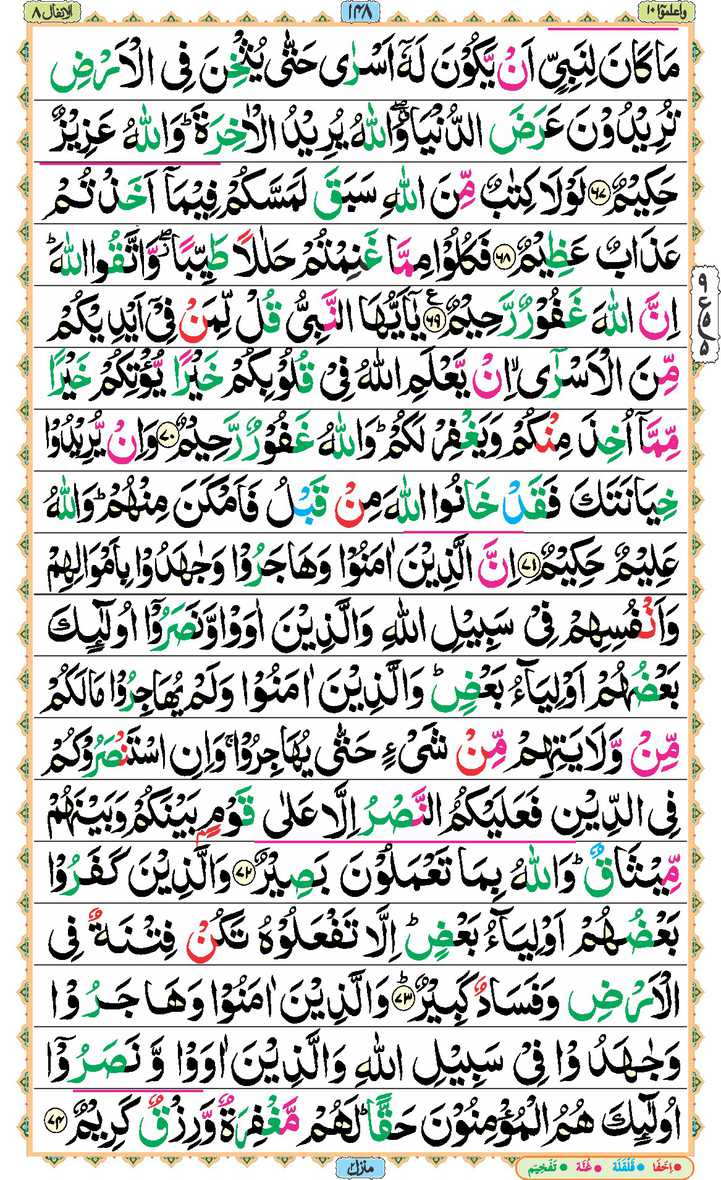 واعلموا ١٠
١٤٨
الانفال ٨
مَا كَانَ لِنَبِيٍّ اَنۡ يَّكُوۡنَ لَهٗۤ اَسۡرٰى حَتّٰى يُثۡخِنَ فِى الۡاَرۡضِ‌ؕ
تُرِيۡدُوۡنَ عَرَضَ الدُّنۡيَا ۖ وَاللّٰهُ يُرِيۡدُ الۡاٰخِرَةَ‌ ؕ وَاللّٰهُ عَزِيۡزٌ
حَكِيۡمٌ ﴿۶۷﴾ لَوۡلَا كِتٰبٌ مِّنَ اللّٰهِ سَبَقَ لَمَسَّكُمۡ فِيۡمَاۤ اَخَذۡتُمۡ
عَذَابٌ عَظِيۡمٌ ﴿۶۸﴾ فَكُلُوۡا مِمَّا غَنِمۡتُمۡ حَلٰلًا طَيِّبًا ۖ وَّاتَّقُوا اللّٰهَ‌ ؕ
اِنَّ اللّٰهَ غَفُوۡرٌ رَّحِيۡمٌ ﴿۶۹﴾ يٰۤاَيُّهَا النَّبِىُّ قُلْ لِّمَنۡ فِىۡۤ اَيۡدِيۡكُمۡ
مِّنَ الۡاَسۡرٰٓىۙ اِنۡ يَّعۡلَمِ اللّٰهُ فِىۡ قُلُوۡبِكُمۡ خَيۡرًا يُّؤۡتِكُمۡ خَيۡرًا
مِّمَّاۤ اُخِذَ مِنۡكُمۡ وَيَغۡفِرۡ لَكُمۡ‌ؕ وَاللّٰهُ غَفُوۡرٌ رَّحِيۡمٌ ﴿۷۰﴾ وَاِنۡ يُّرِيۡدُوۡا
خِيَانَـتَكَ فَقَدۡ خَانُوا اللّٰهَ مِنۡ قَبۡلُ فَاَمۡكَنَ مِنۡهُمۡ‌ؕ وَاللّٰهُ
عَلِيۡمٌ حَكِيۡمٌ ﴿۷۱﴾ اِنَّ الَّذِيۡنَ اٰمَنُوۡا وَهَاجَرُوۡا وَجٰهَدُوۡا بِاَمۡوَالِهِمۡ
وَاَنۡفُسِهِمۡ فِىۡ سَبِيۡلِ اللّٰهِ وَالَّذِيۡنَ اٰوَوْا وَّنَصَرُوۡۤا اُولٰۤٮِٕكَ
بَعۡضُهُمۡ اَوۡلِيَآءُ بَعۡضٍ‌ؕ وَالَّذِيۡنَ اٰمَنُوۡا وَلَمۡ يُهَاجِرُوۡا مَا لَـكُمۡ
مِّنۡ وَّلَايَتِهِمۡ مِّنۡ شَىۡءٍ حَتّٰى يُهَاجِرُوۡا‌ ۚ وَاِنِ اسۡتَـنۡصَرُوۡكُمۡ
فِى الدِّيۡنِ فَعَلَيۡكُمُ النَّصۡرُ اِلَّا عَلٰى قَوۡمٍۢ بَيۡنَكُمۡ وَبَيۡنَهُمۡ
مِّيۡثَاقٌ ؕ وَاللّٰهُ بِمَا تَعۡمَلُوۡنَ بَصِيۡرٌ ﴿۷۲﴾ وَالَّذِيۡنَ كَفَرُوۡا
بَعۡضُهُمۡ اَوۡلِيَآءُ بَعۡضٍ‌ؕ اِلَّا تَفۡعَلُوۡهُ تَكُنۡ فِتۡنَةٌ فِى
الۡاَرۡضِ وَفَسَادٌ كَبِيۡرٌؕ ﴿۷۳﴾ وَالَّذِيۡنَ اٰمَنُوۡا وَهَاجَرُوۡا
وَجٰهَدُوۡا فِىۡ سَبِيۡلِ اللّٰهِ وَالَّذِيۡنَ اٰوَوْا وَّنَصَرُوۡۤا
اُولٰۤٮِٕكَ هُمُ الۡمُؤۡمِنُوۡنَ حَقًّا‌ ؕ لَهُمۡ مَّغۡفِرَةٌ وَّرِزۡقٌ كَرِيۡمٌ ﴿۷۴﴾
منزل ٢
اِخْفَا قَلْقَلَة غُنَّه تَفْخِيْم